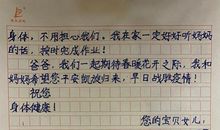 身体,不用担心我们。我在家一定好好听妈妈
的话,按时完成作业!
爸爸,我们一起期待春暖花开之际,我和
妈妈希望您平安凯旋归来,早日战胜疫情!
祝您
身体健康!
您的宝贝女儿: